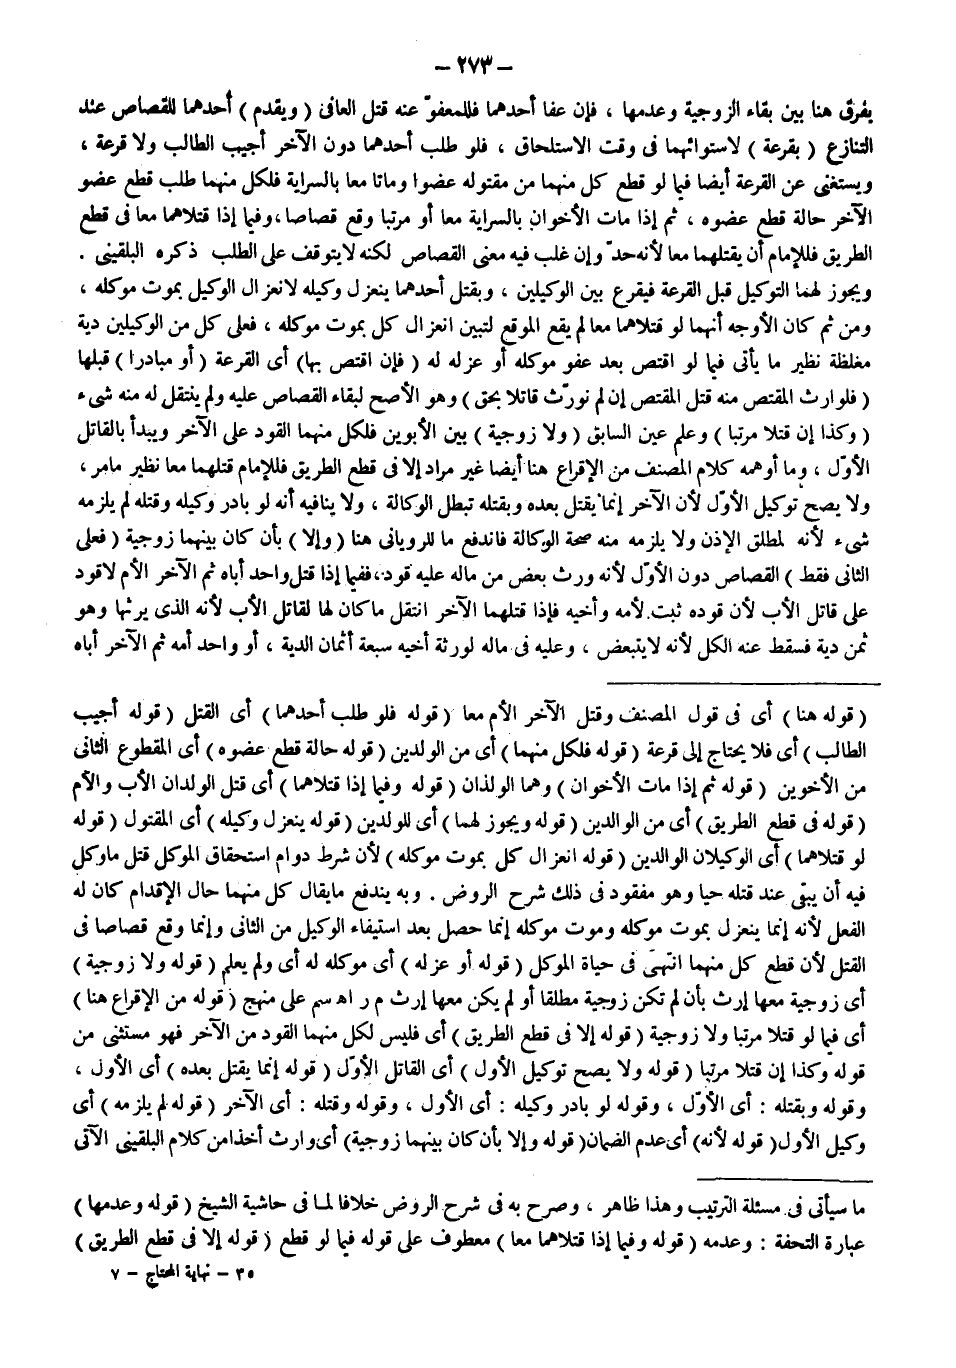 – ٢٧٣ –
يفرق هنا بين بقاء الزوجية وعدمها ، فإن عفا أحدهما فللمعفوّ عنه قتل العافى ( ويقدم ) أحدهما للقصاص عند
التنازع ( بقرعة ) لاستوائهما فى وقت الاستلحاق ، فلو طلب أحدهما دون الآخر أجيب الطالب ولا قرعة ،
ويستغنى عن القرعة أيضا فيما لو قطع كل منهما من مقتوله عضوا وماتا معا بالسراية فلكل منهما طلب قطع عضو
الآخر حالة قطع عضوه ، ثم إذا مات الأخوان بالسراية معا أو مرتبا وقع قصاصا، وفيما إذا قتلاهما معا فى قطع
الطريق فللإمام أن يقتلهما معا لأنه حدّ وإن غلب فيه معنى القصاص لكنه لايتوقف على الطلب ذكره البلقينى .
ويجوز لهما التوكيل قبل القرعة فيقرع بين الوكيلين ، وبقتل أحدهما ينعزل وكيله لانعزال الوكيل بموت موكله ،
ومن ثم كان الأوجه أنهما لو قتلاهما معا لم يقع الموقع لتبين انعزال كل بموت موكله ، فعلى كل من الوكيلين دية
مغلظة نظير ما يأتى فيما لو اقتص بعد عفو موكله أو عزله له ( فإن اقتص بها) أى القرعة ( أو مبادرا ) قبلها
( فلوارث المقتص منه قتل المقتص إن لم نورّث قاتلا بحق ) وهو الأصح لبقاء القصاص عليه ولم ينتقل له منه شىء
( وكذا إن قتلا مرتبا ) وعلم عين السابق ( ولا زوجية ) بين الأبوين فلكل منهما القود على الآخر ويبدأ بالقاتل
الأوّل ، وما أوهمه كلام المصنف من الإقراع هنا أيضا غير مراد إلا فى قطع الطريق فللإمام قتلهما معا نظير مامر ،
ولا يصح توكيل الأوّل لأن الآخر إنما يقتل بعده وبقتله تبطل الوكالة ، ولا ينافيه أنه لو بادر وكيله وقتله لم يلزمه
شىء لأنه لمطلق الإذن ولا يلزمه منه صحة الوكالة فاندفع ما للرويانى هنا ( وإلا ) بأن كان بينهما زوجية ( فعلى
الثانى فقط ) القصاص دون الأوّل لأنه ورث بعض من ماله عليه قود، ففيما إذا قتل واحد أباه ثم الآخر الأم لاقود
على قاتل الأب لأن قوده ثبت لأمه وأخيه فإذا قتلهما الآخر انتقل ماكان لها لقاتل الأب لأنه الذى يرثها وهو
ثمن دية فسقط عنه الكل لأنه لايتبعض ، وعليه فى ماله لورثة أخيه سبعة أثمان الدية ، أو واحد أمه ثم الآخر أباه
( قوله هنا ) أى فى قول المصنف وقتل الآخر الأم معا ( قوله فلو طلب أحدهما ) أى القتل ( قوله أجيب
الطالب ) أى فلا يحتاج إلى قرعة ( قوله فلكل منهما ) أى من الولدين ( قوله حالة قطع عضوه ) أى المقطوع الثانى
من الأخوين ( قوله ثم إذا مات الأخوان ) وهما الولدان ( قوله وفيما إذا قتلاهما ) أى قتل الولدان الأب والأم
( قوله فى قطع الطريق ) أى من الوالدين ( قوله ويجوز لهما ) أى للولدين ( قوله ينعزل وكيله ) أى المقتول ( قوله
لو قتلاهما ) أى الوكيلان الوالدين ( قوله انعزال كل بموت موكله ) لأن شرط دوام استحقاق الموكل قتل ماوكل
فيه أن يبقى عند قتله حيا وهو مفقود فى ذلك شرح الروض . وبه يندفع مايقال كل منهما حال الإقدام كان له
الفعل لأنه إنما ينعزل بموت موكله وموت موكله إنما حصل بعد استيفاء الوكيل من الثانى وإنما وقع قصاصا فى
القتل لأن قطع كل منهما انتهى فى حياة الموكل ( قوله أو عزله ) أى موكله له أى ولم يعلم ( قوله ولا زوجية )
أى زوجية معها إرث بأن لم تكن زوجية مطلقا أو لم يكن معها إرث م ر اه سم على منهج ( قوله من الإقراع هنا )
أى فيما لو قتلا مرتبا ولا زوجية ( قوله إلا فى قطع الطريق ) أى فليس لكل منهما القود من الآخر فهو مستثنى من
قوله وكذا إن قتلا مرتبا ( قوله ولا يصح توكيل الأول ) أى القاتل الأوّل ( قوله إنما يقتل بعده ) أى الأول ،
وقوله وبقتله : أى الأوّل ، وقوله لو بادر وكيله : أى الأول ، وقوله وقتله : أى الآخر ( قوله لم يلزمه ) أى
وكيل الأول( قوله لأنه) أى عدم الضمان( قوله وإلا بأن كان بينهما زوجية) أى وارث أخذا من كلام البلقينى الآتى
ما سيأتى فى مسئلة الترتيب وهذا ظاهر ، وصرح به فى شرح الروض خلافا لما فى حاشية الشيخ ( قوله وعدمها )
عبارة التحفة : وعدمه ( قوله وفيما إذا قتلاهما معا ) معطوف على قوله فيما لو قطع ( قوله إلا فى قطع الطريق )
٣٥ – نهاية المحتاج – ٧